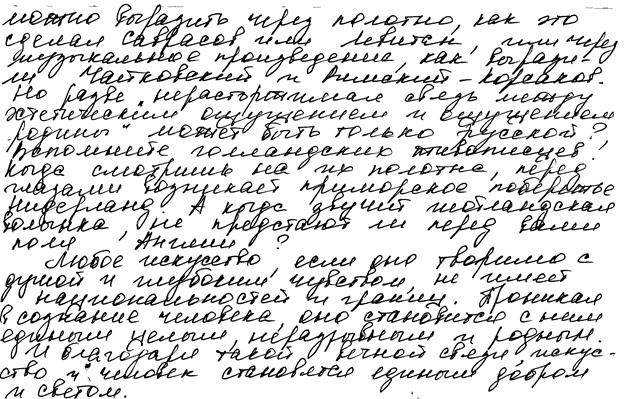 можно выразить через полотно, как это
сделал Саврасов или Левитан, или через
музыкальное произведение, как вырази-
ли Чайковский и Римский-Корсаков.
Но разве "нерасторжимая связь между
эстетическим ощущением и ощущением
родины" может быть только русской?
Вспомните голландских живописцев!
Когда смотришь на их полотна, перед
глазами возникает приморское побережье
Нидерланд. А когда звучит шотландская
волынка, не предстают ли перед вами
поля Англии?
Любое искусство, если оно творимо с
душой и глубоким чувством, не имеет
национальностей и границ. Проникая
в сознание человека, оно становится с ним
единым целым, неразрывным и родным.
И благодаря такой вечной связи, искус-
ство и человек становятся единым добром
и светом.